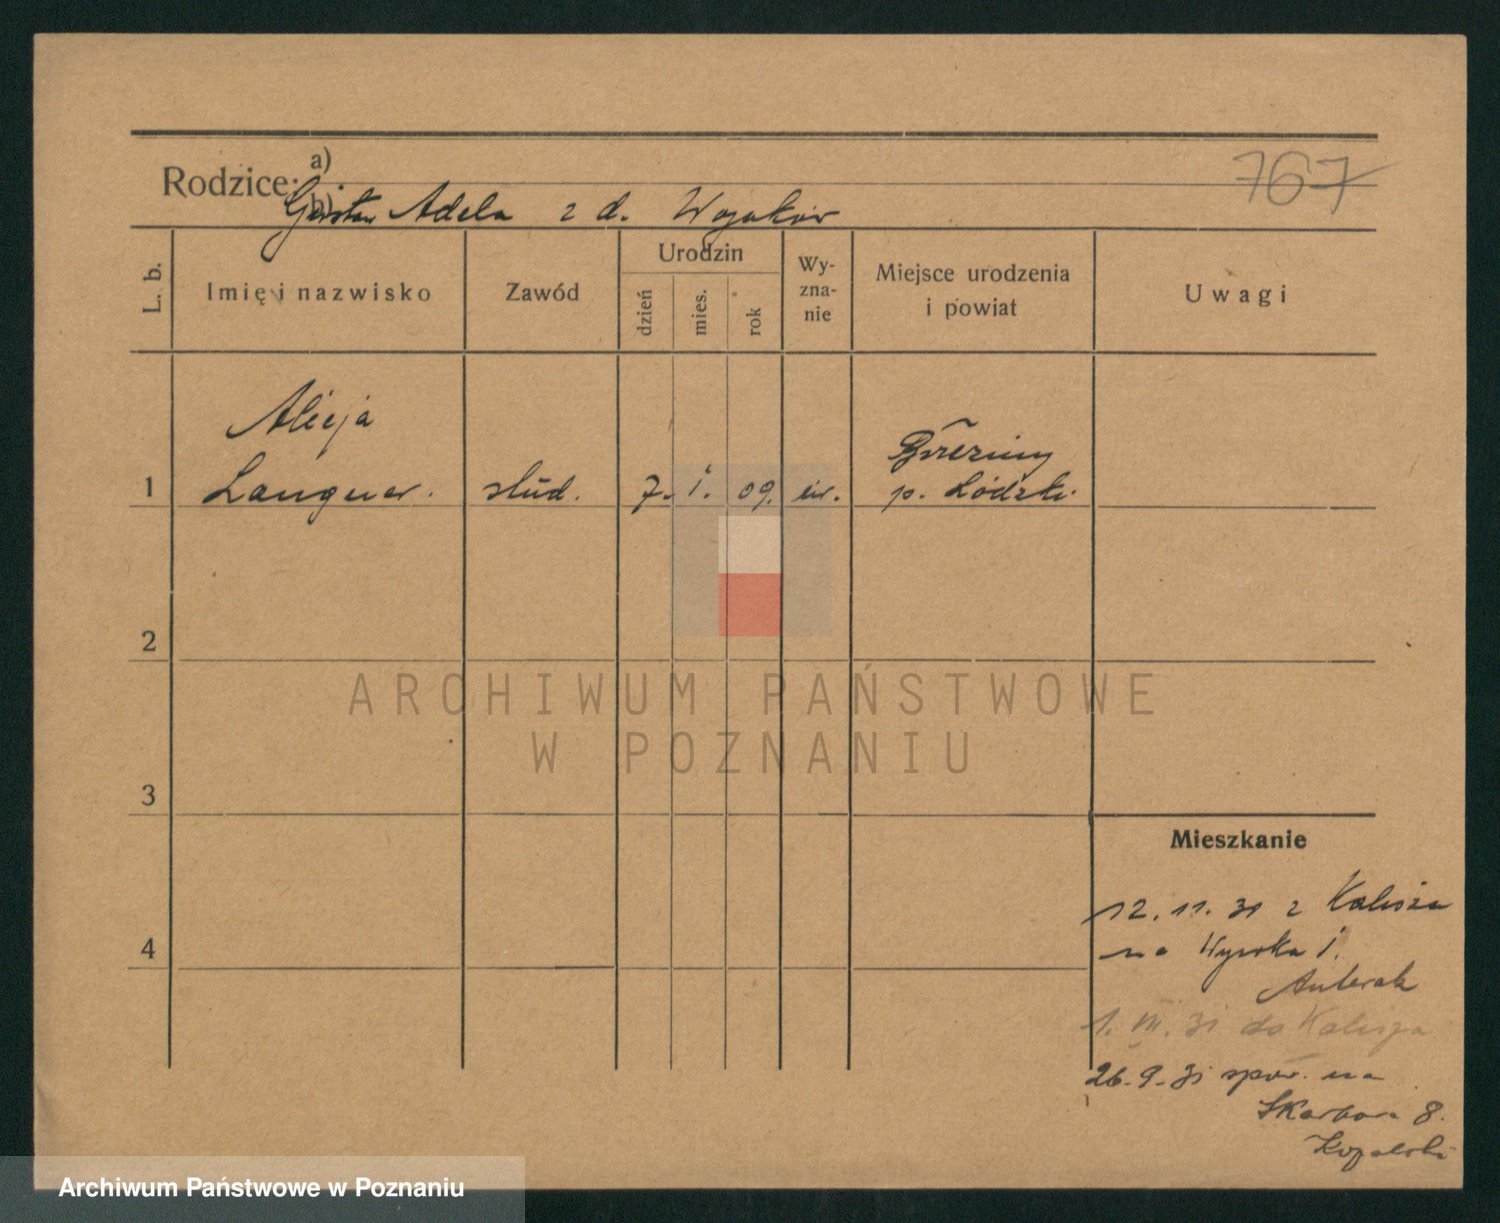 767
Rodzice: a)
b)
Adela z d. Wojaków
L. b.
Imię i nazwisko
Zawód
Urodzin
dzień
mies.
rok
Wy-
zna-
nie
Miejsce urodzenia
i powiat
Uwagi
Alicja
Brzeziny
1
Languer.
stud.
7. I. 09.
p. Łódzki.
2
ARCHIWUM PAŃSTWOWE
W POZNANIU
3
Mieszkanie
12. 11. 31 z Kalisza
4
na Wysoka 1.
31 do Kalisza
26. 9. 31 spow. na
Skarbowa 8.
Archiwum Państwowe w Poznaniu